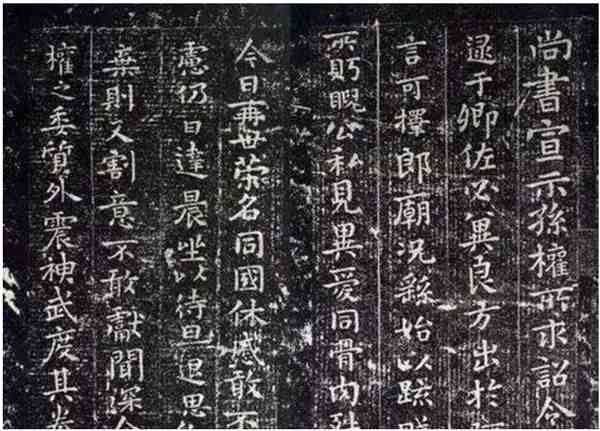 尚書宣示孫權所求詔令
逮于卿佐必冀良方出於
言可擇郎廟況繇始以疏賤
所眄睨公私見異愛同骨肉殊
今日再世榮名同國休慼敢不
慮仍日達晨坐以待旦退思
棄則又割意不敢獻聞深念
權之委質外震神武度其拳